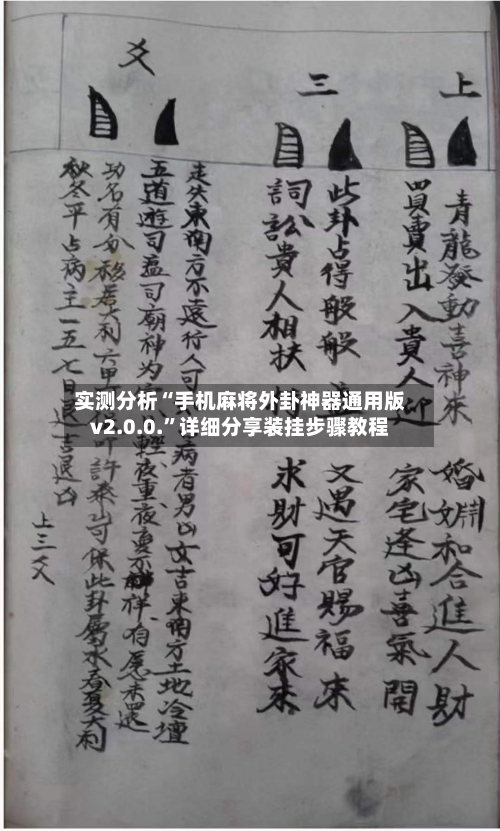 上
三
爻
青龍發動喜神來
婚姻和合進人財
買賣出入貴人迎
家宅逢凶喜氣開
此卦占得般般
又遇天官賜福來
詞訟貴人相扶
求財可好進家來
走失東南方不遠行人可 病者男凶女吉東南方土地冷壇
五道遊司瘟司廟神为 輕夜重夜夢不祥有愿未還
功名有分 六甲 許 保此卦屬水春夏大利
秋冬平占病主一五七日退吉還凶
上三爻
实测分析“手机麻将外卦神器通用版
v2.0.0.”详细分享装挂步骤教程